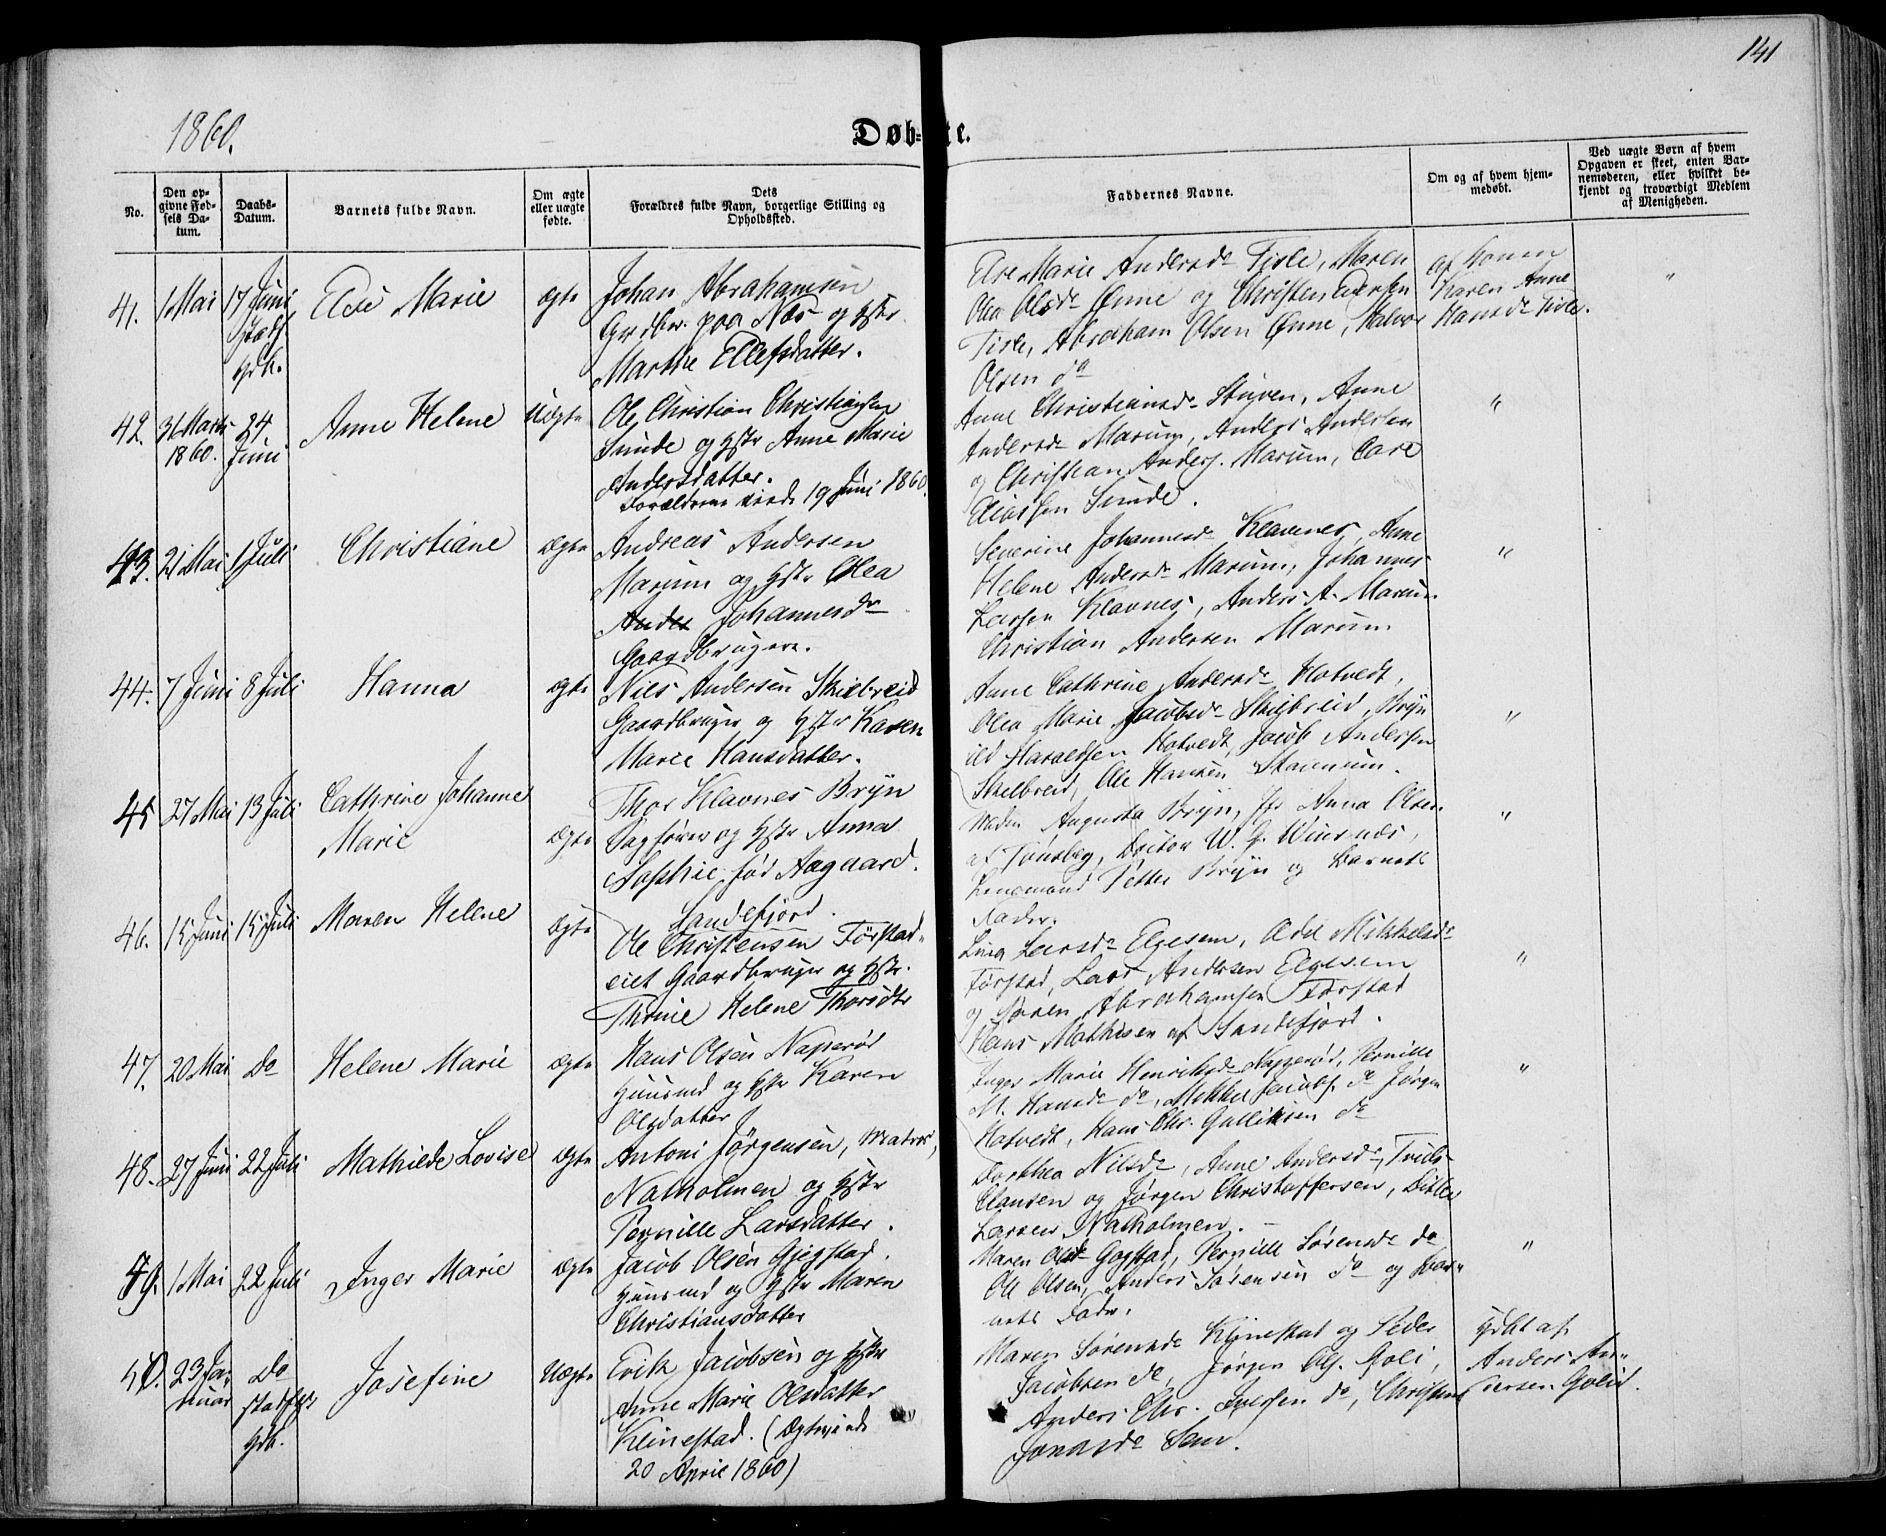 141
1860.
Døb-te.
No.
Den op-
givne Fød-
sels Da-
tum.
Daabs-
Datum.
Barnets fulde Navn.
Om ægte
eller uægte
fødte.
Dets
Forældres fulde Navn, borgerlige Stilling og
Opholdssted.
Faddernes Navne.
Om og af hvem hjem-
medøbt.
Ved uægte Børn af hvem
Opgaven er skeet, enten Bar-
nemoderen, eller hvilket be-
kjendt og troværdigt Medlem
af Menigheden.
41. 1 Mai 17 Juni
hdb.
Else Marie
ægte
Johan Abrahamsen
Grdbr. paa Næs og Hstr
Marthe Ellefsdatter.
Else Marie Andersd. Tisle, Maren
Olea Olsd. Ønne og Christen
Tisle, Abraham Olsen Ønne, Halvor
Olsen do
af Konen
Karen Anne
Hansd. Tisle.
"
42. 31 Marts
1860.
24
Juni
Anne Helene
Uægte
Ole Christian Christiansen
Sunde og Hstr Anne Marie
Andersdatter.
Forældrene viede 19 Juni 1860.
Anne Christiansd. Stuven, Anne
Andersd. Marum, Anders Andersen
og Christian Anders. Marum, Carl
Eliassen Sunde.
"
43. 21 Mai 1 Juli
Christiane
ægte
Andreas Andersen
Marum og Hstr Olea
Johannesdr
Gaardbrugere.
Severine Johannesd. Klavenes, Anne
Helene Andersd. Marum, Johannes
Larsen Klavnes, Anders A. Marum
Christian Andersen Marum
"
44. 7 Juni 8 Juli
Hanna
ægte
Nils Andersen Skielbreid
Gaardbruger og Hstr Karen
Marie Hansdatter.
Anne Cathrine Andersd. Hotvedt,
Olea Marie Jacobsd. Skielbreid, Bryn
ild Haraldsen Hotvedt, Jacob Andersen
Skielbreid, Ole Hansen
"
45 27 Mai 13 Juli
Cathrine Johanne
Marie
ægte
Thor Klavnes Bryn
Sagfører og Hstr Anna
Sophie født Aagaard.
Sandefjord.
Madm Augusta Bryn, Jfr Anna Olsen
af Tønsberg, Doctor W. G.
Lensmand Petter Bryn og Barnets
Fader.
"
46. 15 Juni 15 Juli
Maren Helene
ægte
Ole Christensen Førstad-
eiet Gaardbruger og Hstr.
Thrine Helene Thorsdtr
Lina Larsd. Elgesem, Edel Mikkelsd.
Førstad, Lars Andersen Elgesem
og Søren Abrahamsen Førstad
Hans Mathisen af Sandefjord.
"
47. 20 Mai Do
Helene Marie
ægte
Hans Olsen Naperød
Huusmd og Hstr Karen
Olsdatter
Inger Marie Henriksd. Napperød, Pernille
M. Hansd. do, Mikkel Jacobs. do Jørgen
Hotvedt, Hans Chr. Gulliksen do
"
48. 27 Juni 22 Juli
Mathilde Lovise
ægte
Antoni Jørgensen, Matros,
Natholmen og Hstr
Pernille Larsdatter.
Dorthea Nilsd., Anne Andersd., Truls
Clausen og Jørgen Christoffersen, Ditlev
Larsen Natholmen.
49. 1 Mai 22 Juli
Inger Marie
ægte
Jacob Olsen Gjegstad.
Huusmd og Hstr Maren
Christiansdatter
Maren Olsd. Gogstad, Pernille Sørensd. do
Ole Olsen, Anders Sørensen do og Bar-
nets Fader.
"
50. 23 Ja-
nuar
Do
stadfst
hdb.
Josefine
Uægte
Erik Jacobsen og Hstr
Anne Marie Olsdatter
Klinestad. (Ægteviede
20 April 1860)
Maren Sørensd. Klinestad og Peder
Jacobsen do, Jørgen Ols. Goli,
Anders Chr. do, Christine
Jonasd.
Hdbt af
Anders An-
dersen Golid.